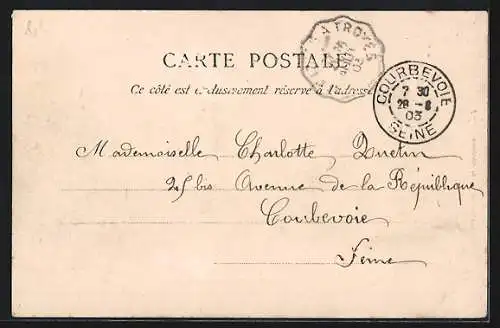 A TROYES
CARTE POSTALE
Ce côté est exclusivement réservé à l'adresse
COURBEVOIE
7 30
28 - 8
03
SEINE
Mademoiselle Charlotte Quetin
25 bis Avenue de la République
Courbevoie
Seine